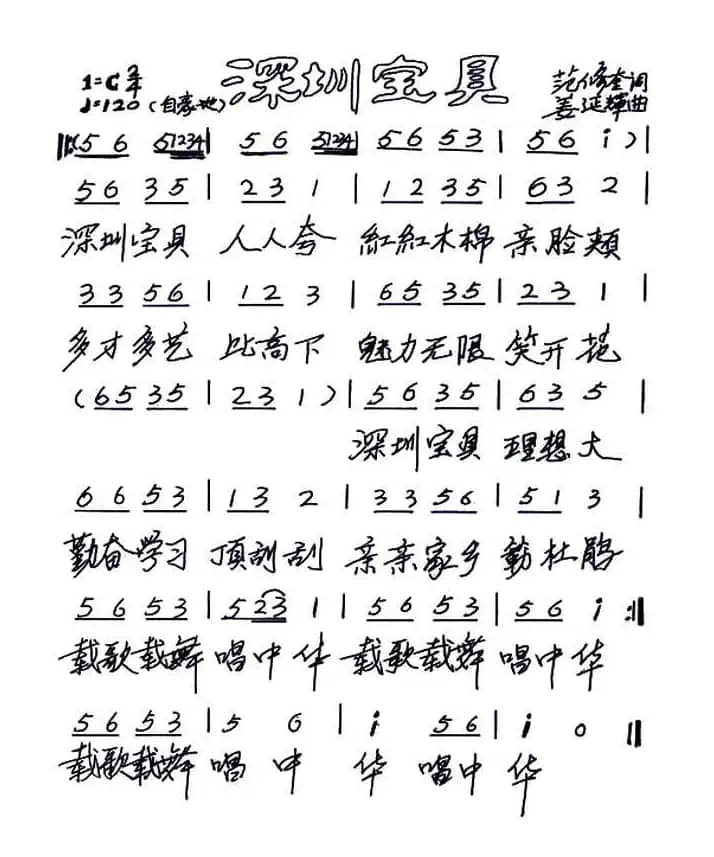 深圳宝貝
1=C 2/4
♩=120（自豪地）
范修奎词
姜延輝曲
‖:(5 6 5 1234 | 5 6 5 1234 | 5 6 5 3 | 5 6 i ) |
5 6 3 5 | 2 3 1 | 1 2 3 5 | 6 3 2 |
深圳宝貝 人人夸 紅紅木棉 亲脸頬
3 3 5 6 | 1 2 3 | 6 5 3 5 | 2 3 1 |
多才多艺 比高下 魅力无限 笑开花
( 6 5 3 5 | 2 3 1 ) | 5 6 3 5 | 6 3 5 |
深圳宝貝 理想大
6 6 5 3 | 1 3 2 | 3 3 5 6 | 5 1 3 |
勤奋学习 頂刮刮 亲亲家乡 杜鹃
5 6 5 3 | 5 2 3 1 | 5 6 5 3 | 5 6 i :‖
载歌载舞 唱中华 载歌载舞 唱中华
5 6 5 3 | 5 6 | i 5 6 | i 0 ‖
载歌载舞 唱中 华 唱中 华